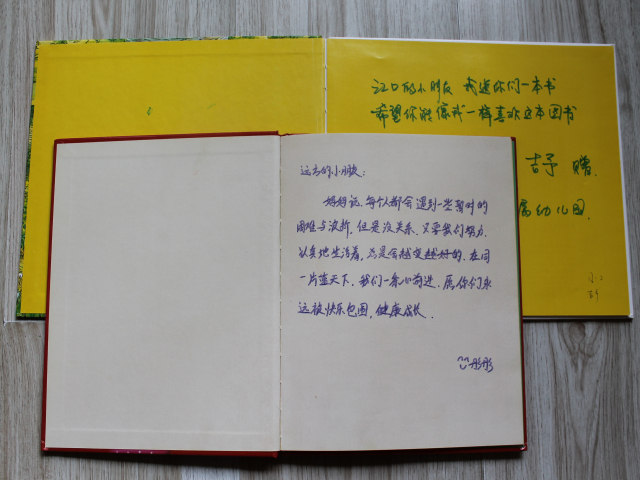 江口的小朋友 我送你们一本书
希望你能像我一样喜欢这本图书
赠
幼儿园
远方的小朋友:
妈妈说,每个人都会遇到一些暂时的
困难与波折,但是没关系,只要我们努力,
认真地生活着,总是会越变越好的。在同
一片蓝天下,我们一条心前进。愿你们永
远被快乐包围,健康成长。
彤彤